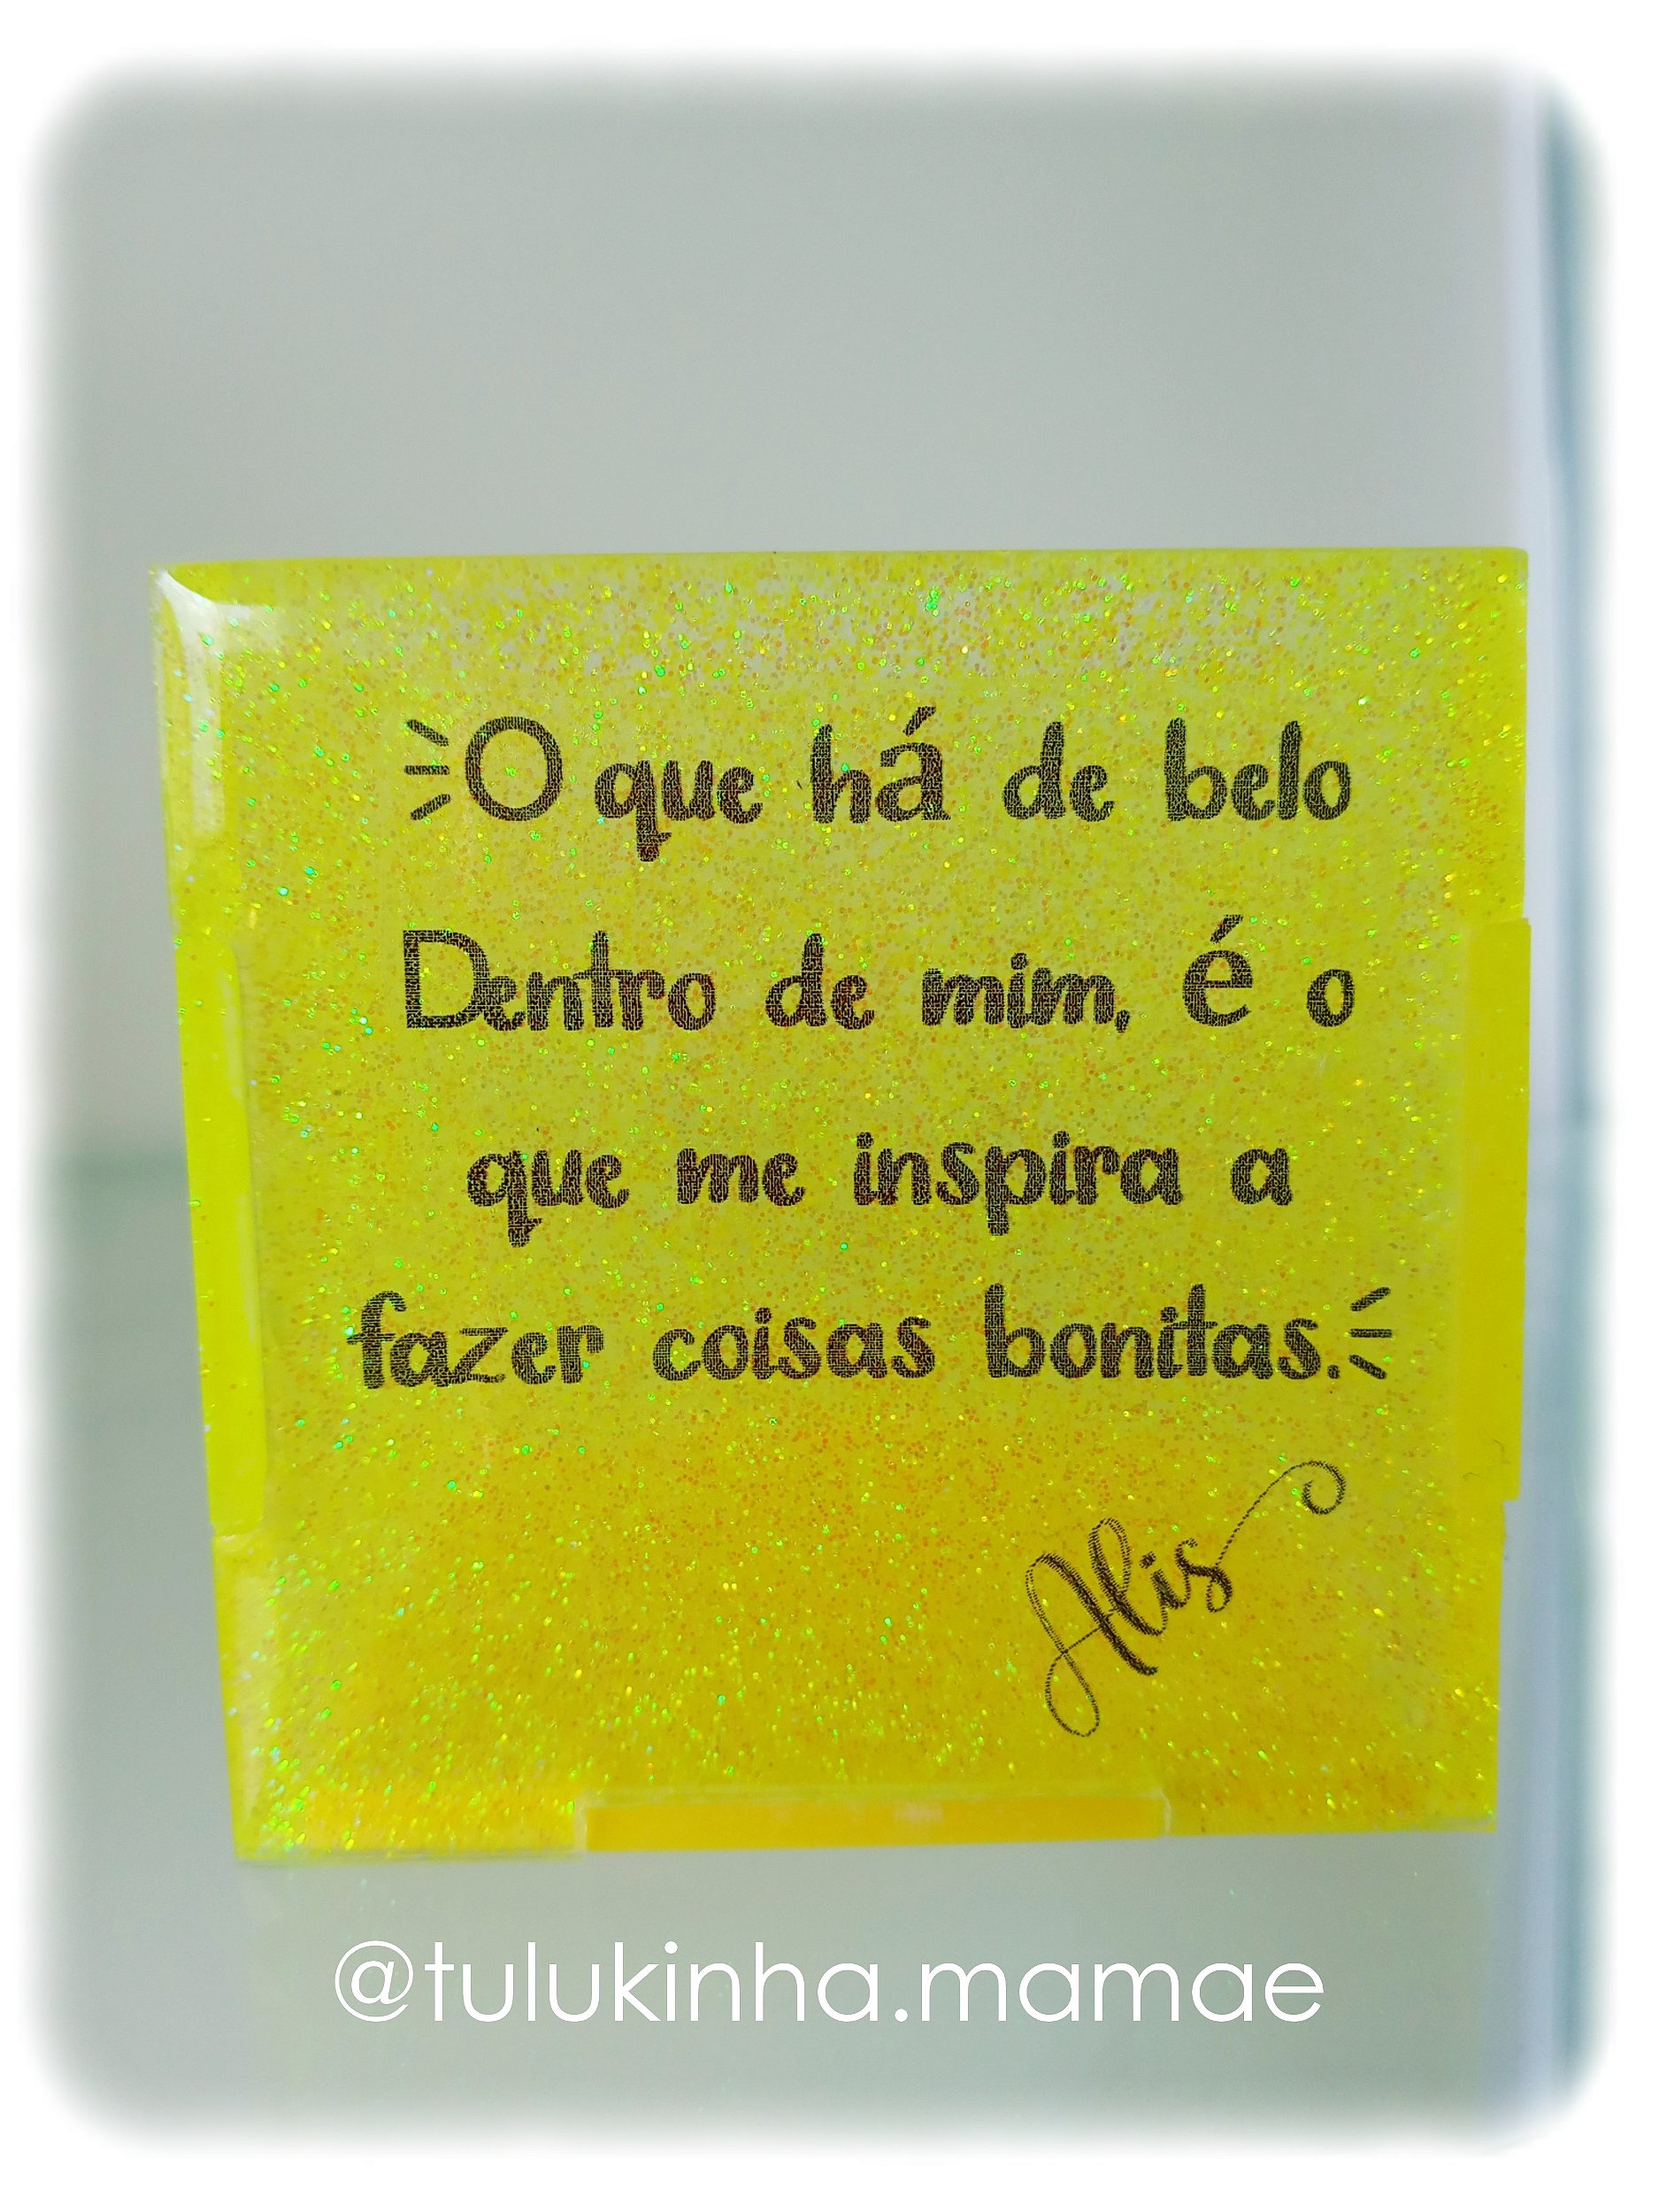 O que há de belo
Dentro de mim, é o
que me inspira a
fazer coisas bonitas.
Alis
@tulukinha.mamae